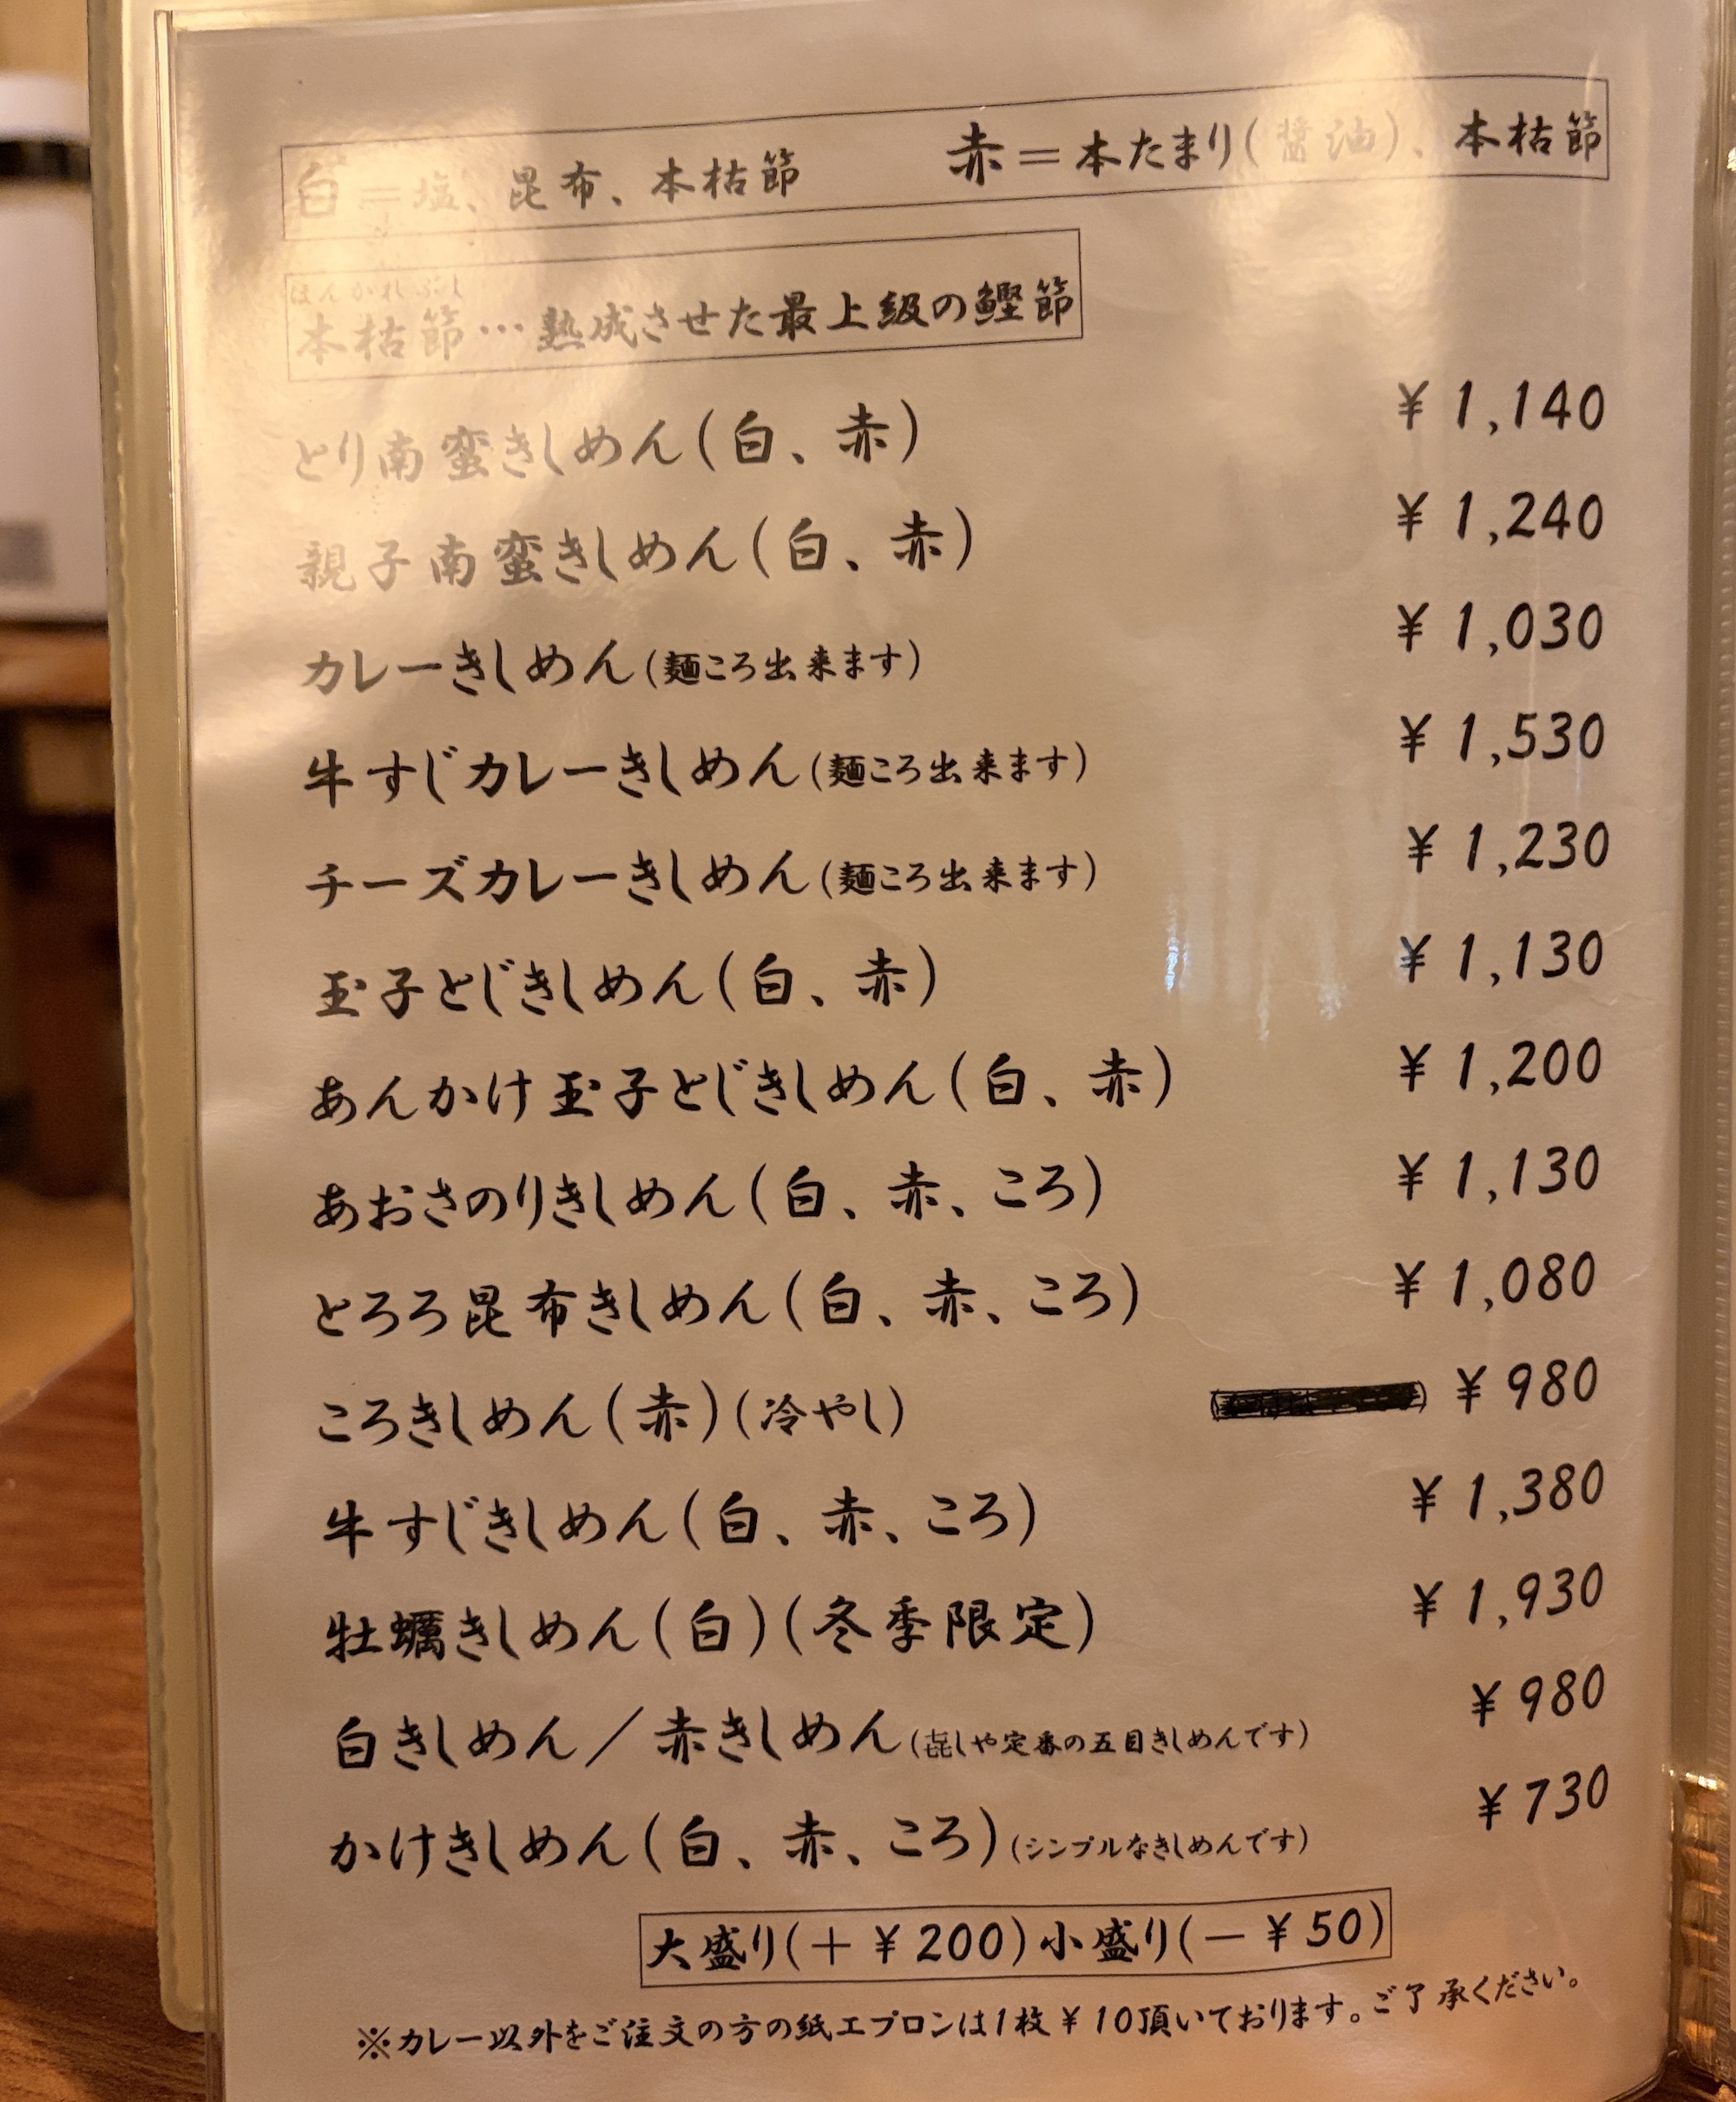 白＝塩、昆布、本枯節　赤＝本たまり(醤油)、本枯節
ほんかれぶし
本枯節…熟成させた最上級の鰹節
とり南蛮きしめん(白、赤) ¥1,140
親子南蛮きしめん(白、赤) ¥1,240
カレーきしめん(麺ころ出来ます) ¥1,030
牛すじカレーきしめん(麺ころ出来ます) ¥1,530
チーズカレーきしめん(麺ころ出来ます) ¥1,230
玉子とじきしめん(白、赤) ¥1,130
あんかけ玉子とじきしめん(白、赤) ¥1,200
あおさのりきしめん(白、赤、ころ) ¥1,130
とろろ昆布きしめん(白、赤、ころ) ¥1,080
ころきしめん(赤)(冷やし) ¥980
牛すじきしめん(白、赤、ころ) ¥1,380
牡蠣きしめん(白)(冬季限定) ¥1,930
白きしめん／赤きしめん(㐂しや定番の五目きしめんです) ¥980
かけきしめん(白、赤、ころ)(シンプルなきしめんです) ¥730
大盛り(＋¥200)小盛り(－¥50)
※カレー以外をご注文の方の紙エプロンは1枚¥10頂いております。ご了承ください。